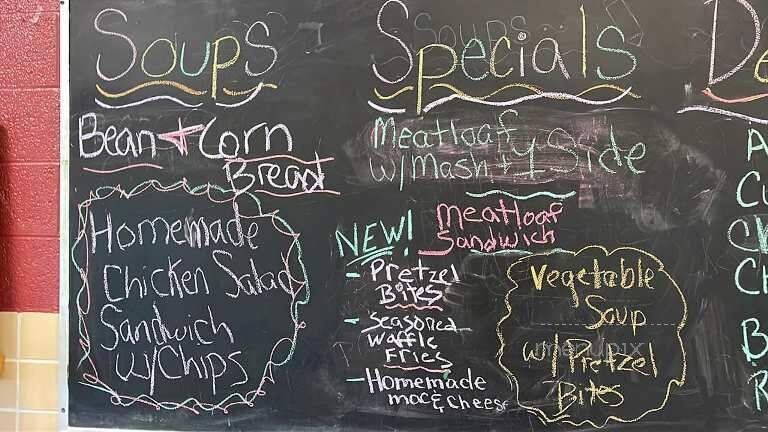 Soups
Bean + Corn
Bread
Homemade
Chicken Salad
Sandwich
w/Chips
Specials
Meatloaf
w/Mash + 1 Side
Meatloaf
Sandwich
NEW!
- Pretzel
Bites
- Seasoned
Waffle
Fries
- Homemade
mac & cheese
Vegetable
Soup
w/ Pretzel
Bites
menupix